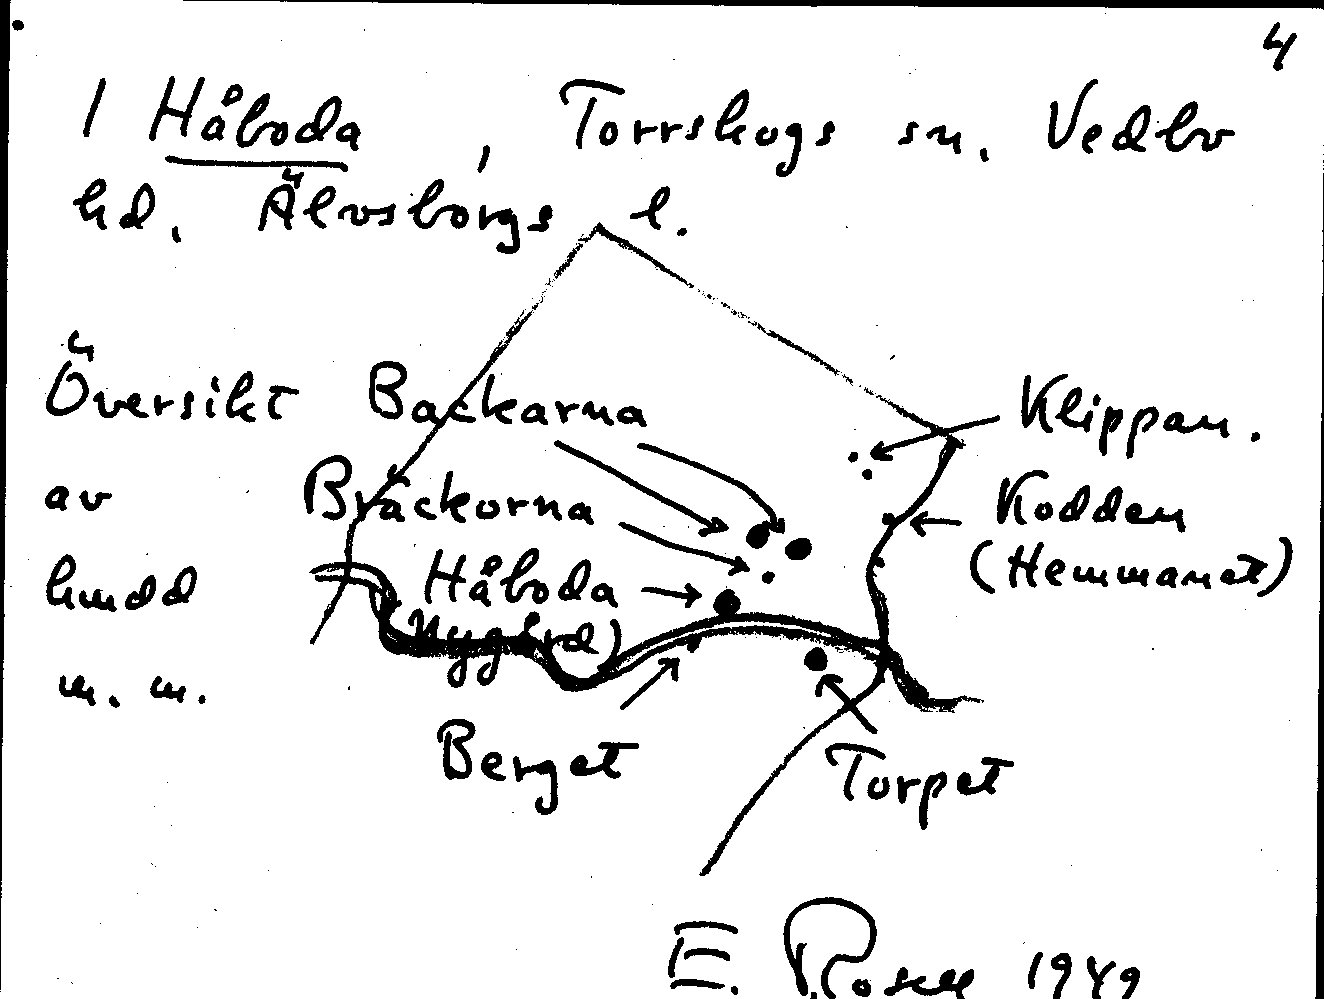 4
1 Håboda, Torrskogs sn. Vedbo
hd. Älvsborgs l.
Översikt
av
hmdd
m. m.
Backarna
Bräckorna
Håboda
(Nygård)
Berget
Klippan.
Kodden
(Hemmanet)
Torpet
E. Rosell 1949